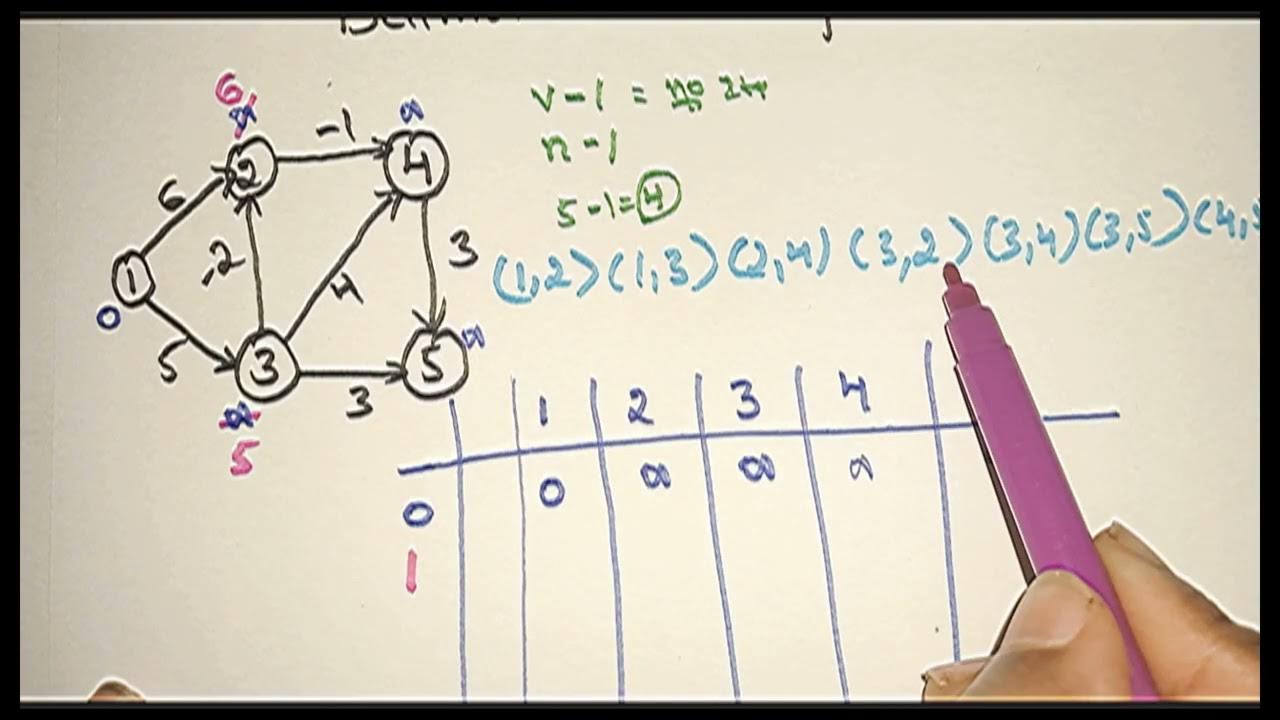 v - 1 = no
n - 1
5 - 1 = 4
(1,2) (1,3) (2,4) (3,2) (3,4) (3,5) (4,5
6
∞
-1
∞
2
4
6
-2
4
3
1
0
5
3
3
5
∞
∞
5
1 2 3 4
0 0 ∞ ∞ ∞
1